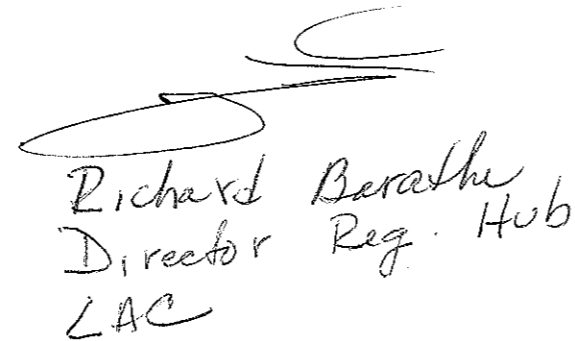 Richard Barathe
Director Reg. Hub
LAC